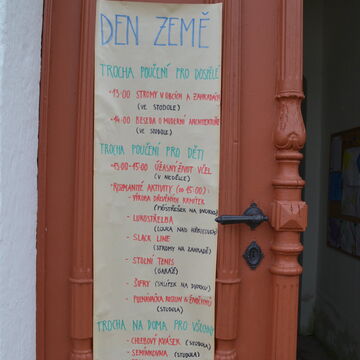 DEN ZEMĚ
TROCHA POUČENÍ PRO DOSPĚLÉ
-13:00 STROMY V OBCÍCH A ZAHRADÁCH
(VE STODOLE)
-14:00 BESEDA O MODERNÍ ARCHITEKTUŘE
(VE STODOLE)
TROCHA POUČENÍ PRO DĚTI
-13:00-15:00 ÚŽASNÝ ŽIVOT VČEL
(V NEDĚLCE)
-ROZMANITÉ AKTIVITY (OD 15:00)
- VÝROBA DŘEVĚNÝCH RAMÍTEK
(PŘÍSTŘEŠEK NA DVORKU)
- LUKOSTŘELBA
(LOUKA NAD
- SLACK LINE
(STROMY NA ZAHRADĚ)
- STOLNÍ TENIS
(GARÁŽ)
- ŠIFRY (SKLÍPEK NA DVORKU)
- POZNÁVAČKA ROSTLIN & ŽIVOČICHŮ
(STODOLA)
TROCHA NA DOMA PRO VŠECHNY
- CHLEBOVÝ KVÁSEK (STODOLA)
- SEMÍNKOVNA (STODOLA)